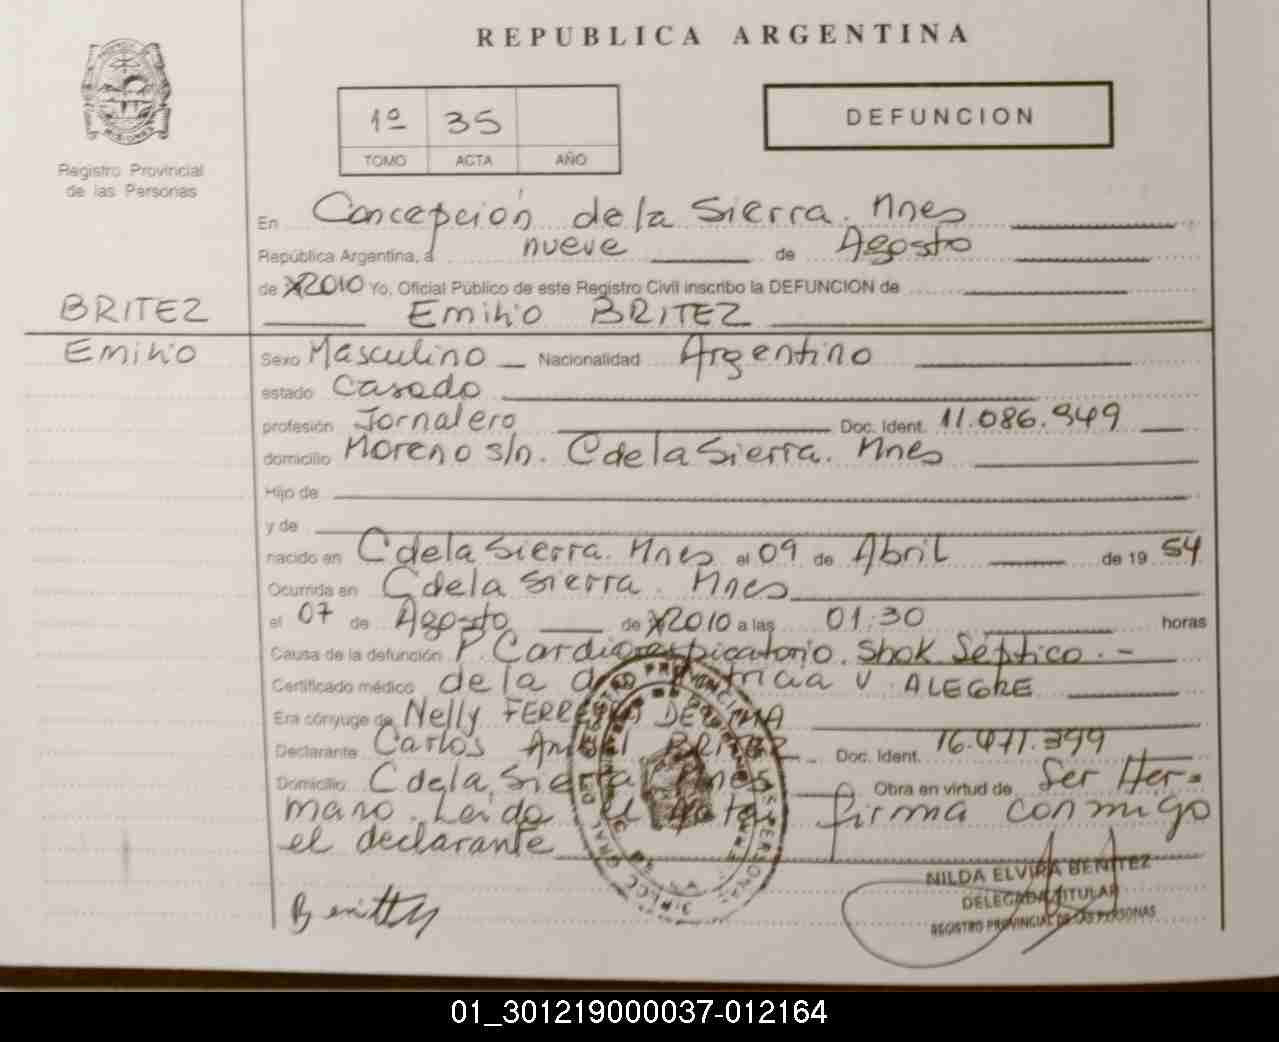 REPUBLICA ARGENTINA
1º 35
TOMO ACTA AÑO
DEFUNCION
Registro Provincial
de las Personas
En Concepción de la Sierra. Mnes
República Argentina, a nueve de Agosto
de 2010 Yo, Oficial Público de este Registro Civil inscribo la DEFUNCION de
BRITEZ Emilio BRITEZ
Emilio Sexo Masculino Nacionalidad Argentino
estado Casado
profesión Jornalero Doc. Ident. 11.086.949
domicilio Moreno s/n. C de la Sierra. Mnes
Hijo de
y de
nacido en C de la Sierra. Mnes el 09 de Abril de 19 54
Ocurrida en C de la Sierra. Mnes
el 07 de Agosto de 2010 a las 01:30 horas
Causa de la defunción P. Cardiorespicatorio. Shok Séptico. -
Certificado médico de la V. ALEGRE
Era cónyuge de Nelly
Declarante Carlos BRITEZ Doc. Ident. 16.471.399
Domicilio C de la Sierra Mnes Obra en virtud de Ser Her=
mano. Leída el Acta firma conmigo
el declarante
NILDA ELVIRA BENITEZ
DELEGADA TITULAR
REGISTRO PROVINCIAL DE LAS PERSONAS
01_301219000037-012164